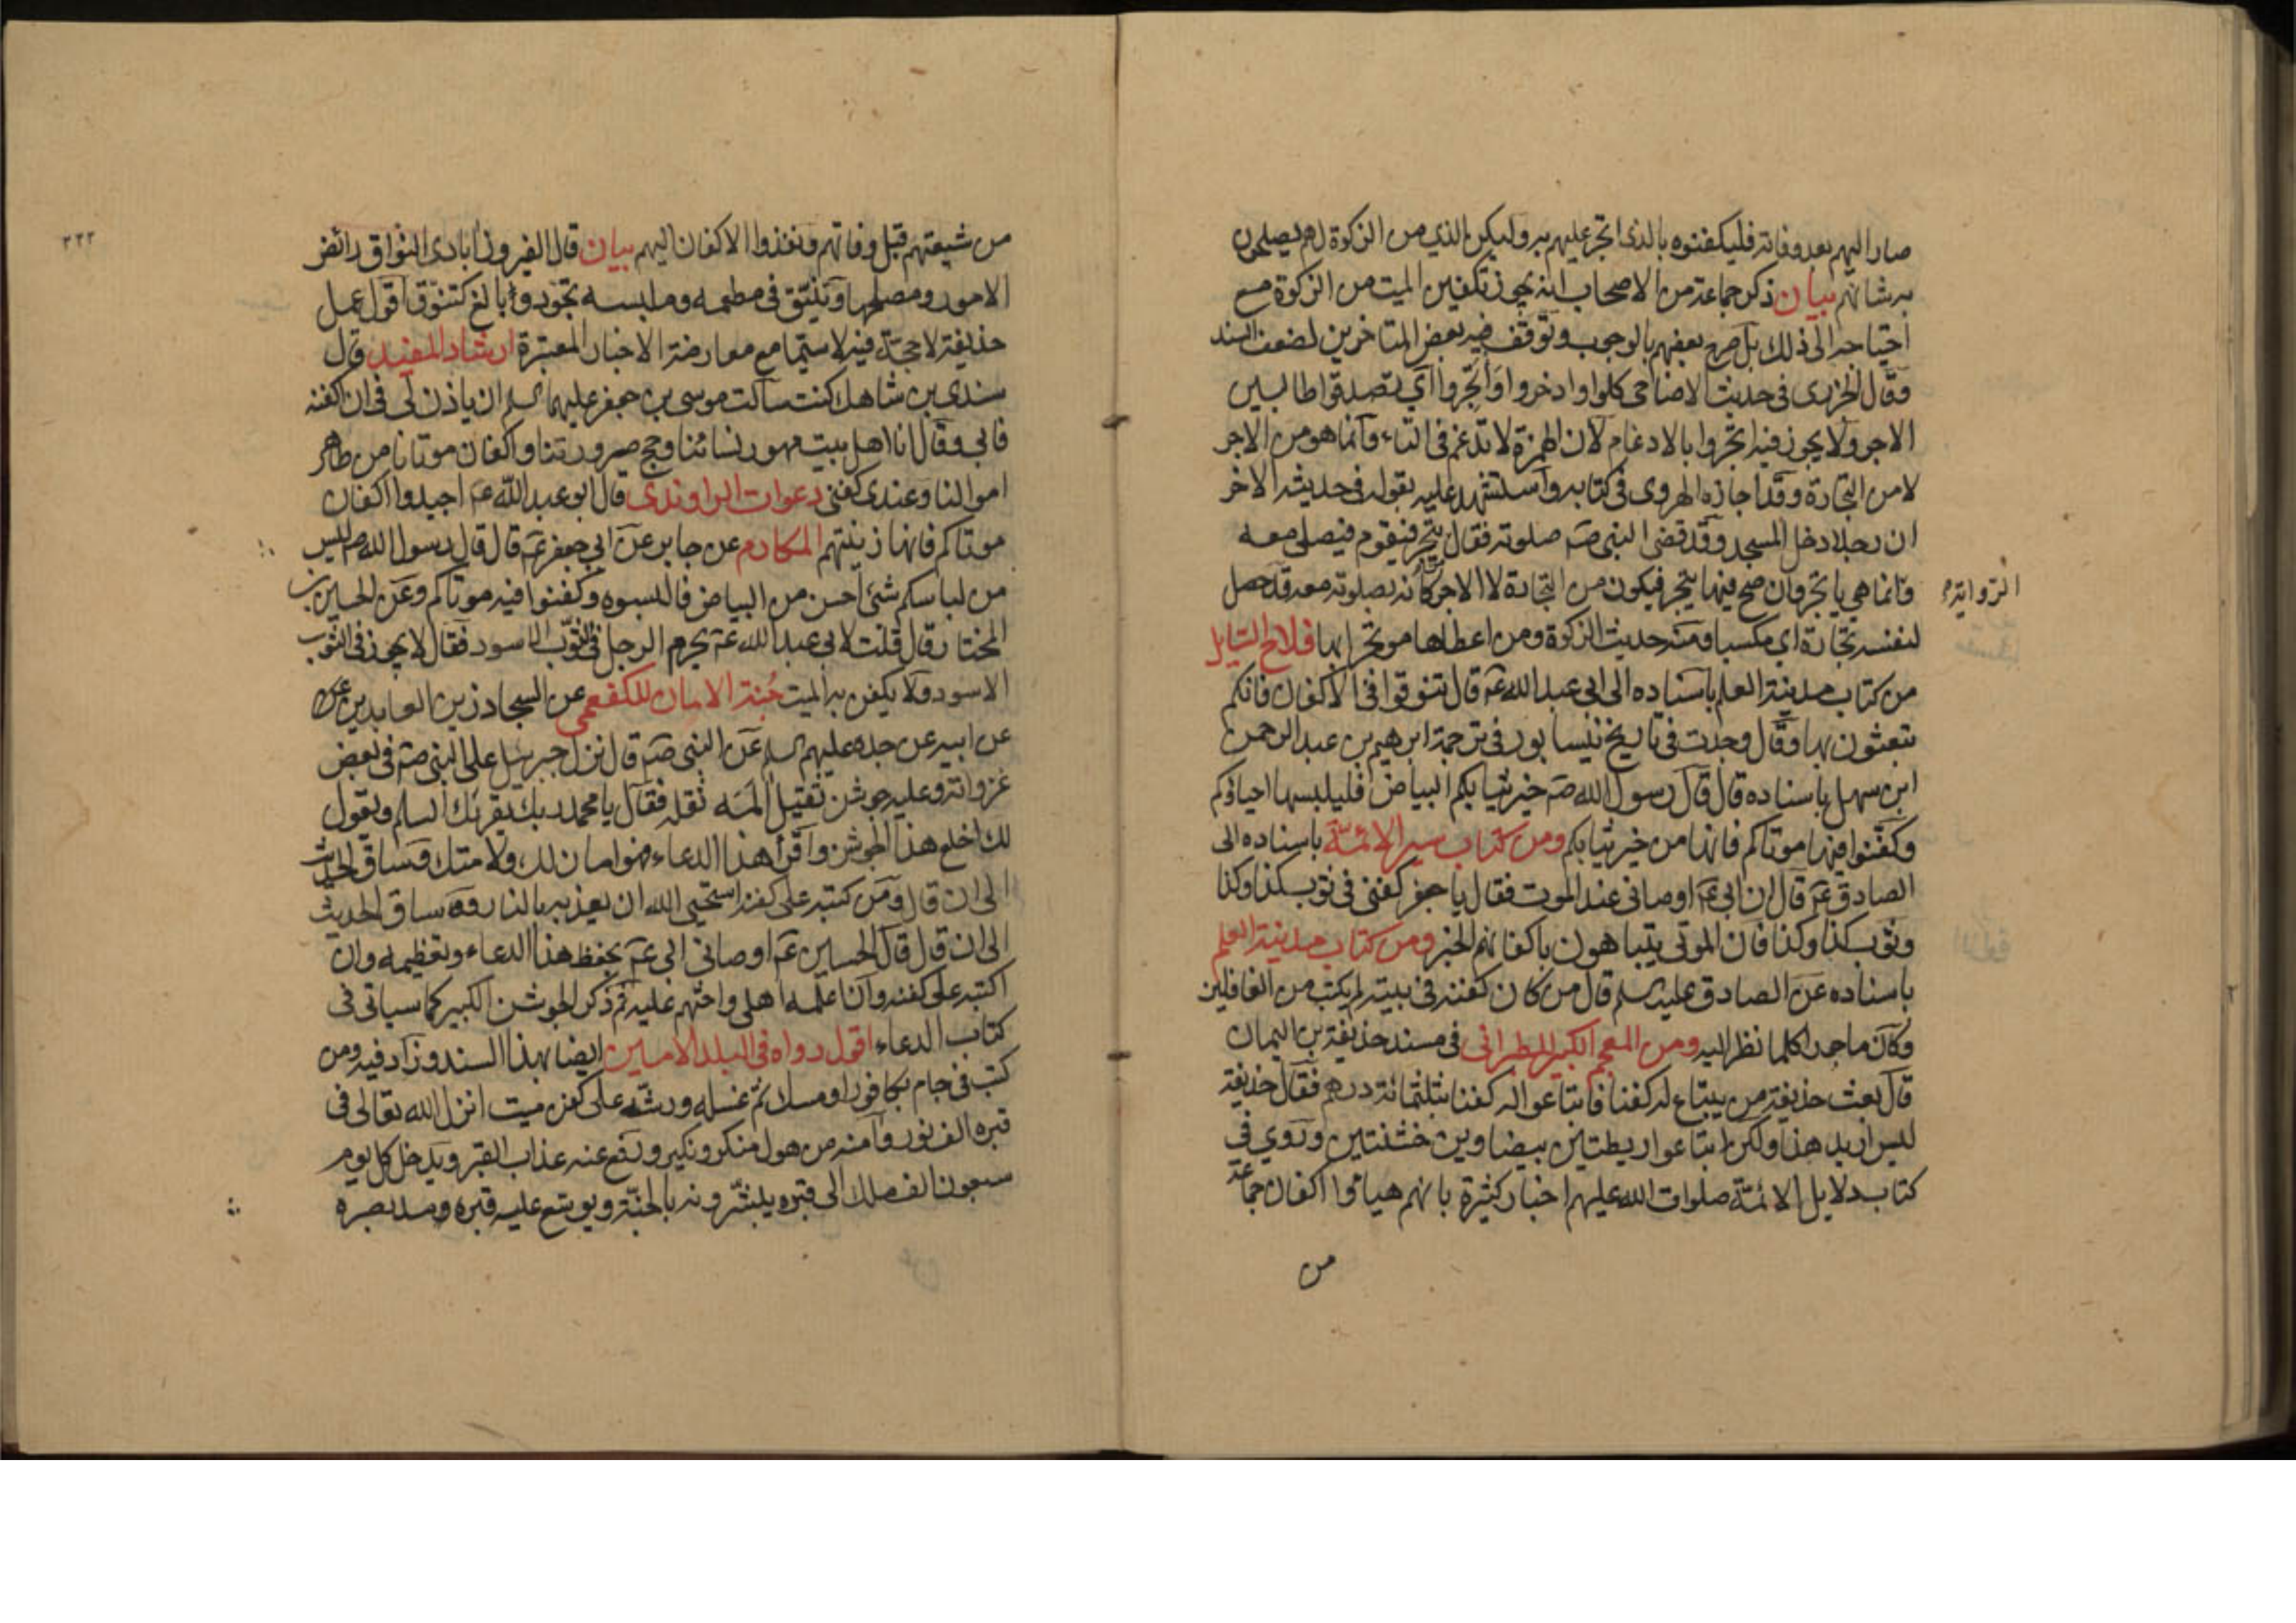 صار اليهم بعد وفاته فليكفنوه بالذى اتجر عليهم به وليكن بالذي من الزكوة لهم يصلحون
به شانهم بيان ذكر جماعة من الاصحاب انه يجوز تكفين الميت من الزكوة مع
احتياجه الى ذلك بل صرح بعضهم بالوجوب وتوقف فيه بعض المتاخرين لضعف السند
وقال الجزرى فى حديث الاضاحى كلوا وادخروا واتجروا اي تصدقوا طالبين
الاجر ولا يجوز فيه اتجروا بالادغام لان الهمزة لا تدغم فى التاء وانما هو من الاجر
لا من التجارة وقد اجازه الهروى فى كتابه واستشهد عليه بقوله فى حديثه الاخر
ان رجلا دخل المسجد وقد قضى النبى صم صلوته فقال من يتجر فيقوم فيصلى معه
الرواية
وانما هي ياتجر وان صح فيها يتجر فيكون من التجارة لا الاجر كانه بصلوته معه قد حصل
لنفسه تجارة اي مكسبا ومنه حديث الزكوة ومن اعطاها موتجرا بها فلاح السايل
من كتاب مدينة العلم باسناده الى ابى عبد الله عم قال تنوقوا فى الاكفان فانكم
تبعثون بها وقال وجدت فى تاريخ نيسابور فى ترجمة ابرهيم بن عبد الرحمن
ابن سهل باسناده قال قال رسول الله صم خير ثيابكم البياض فليلبسها احياؤكم
وكفنوا فيها موتاكم فانها من خير ثيابكم ومن كتاب سير الائمة باسناده الى
الصادق عم قال ان ابى عم اوصانى عند الموت فقال يا جعفر كفنى فى ثوب كذا وكذا
وثوب كذا وكذا فان الموتى يتباهون باكفانهم الخبر ومن كتاب مدينة العلم
باسناده عن الصادق عليه سلم قال من كان كفنه فى بيته لم يكتب من الغافلين
وكان ماجورا كلما نظر اليه ومن المعجم الكبير للطبرانى فى مسند حذيفة بن اليمان
قال بعث حذيفة من يبتاع له كفنا فابتاعوا له كفنا بثلثمائة درهم فقال حذيفة
ليس اريد هذا ولكن ابتاعوا ريطتين بيضاوين خشنتين وروي فى
كتاب دلايل الائمة صلوات الله عليهم اخبار كثيرة بانهم هياوا اكفان جماعة
من
٢٢٢
من شيعتهم قبل وفاتهم ونفذوا الاكفان اليهم بيان قال الفيروزابادى النواق رائض
الامور ومصلحها وتنيق فى مطعمه وملبسه تجود وبالغ كتنوق اقول عمل
حذيفة لا حجة فيه لا سيما مع معارضة الاخبار المعتبرة ارشاد المفيد قال
سندى بن شاهك كنت سالت موسى بن جعفر عليهما السلم ان ياذن لى فى ان اكفنه
فابى وقال انا اهل بيت مهور نسائنا وحج صرورتنا واكفان موتانا من طاهر
اموالنا وعندى كفنى دعوات الراوندى قال ابو عبد الله عم اجيدوا اكفان
موتاكم فانها زينتهم المكارم عن جابر عن ابي جعفر عم قال قال رسول الله صم ليس
من لباسكم شئ احسن من البياض فالبسوه وكفنوا فيه موتاكم وعن الحسين بن
المختار قال قلت لابى عبد الله عم يحرم الرجل فى الثوب الاسود فقال لا يجوز فى الثوب
الاسود ولا يكفن به الميت جنة الامان للكفعمى عن السجاد زين العابدين عن
عن ابيه عن جده عليهم السلم عن النبى صم قال نزل جبرئيل على النبى صم فى بعض
غزواته وعليه جوشن ثقيل المه ثقله فقال يا محمد ربك يقرئك السلم ويقول
لك اخلع هذا الجوشن واقرا هذا الدعاء فهو امان لك ولامتك وساق الحديث
الى ان قال ومن كتبه على كفنه استحيى الله ان يعذبه بالنار وساق الحديث
الى ان قال قال الحسين عم اوصانى ابى عم بحفظ هذا الدعاء وتعظيمه وان
اكتبه على كفنه وان اعلمه اهلى واحثهم عليه ثم ذكر الجوشن الكبير كما سياتى فى
كتاب الدعاء اقول رواه فى البلد الامين ايضا بهذا السند وزاد فيه ومن
كتب فى جام بكافور او مسك ثم غسله ورشه على كفن ميت انزل الله تعالى فى
قبره الف نور وآمنه من هول منكر ونكير ورفع عنه عذاب القبر ويدخل كل يوم
سبعون الف ملك الى قبره يبشرونه بالجنة ويوسع عليه قبره مد بصره